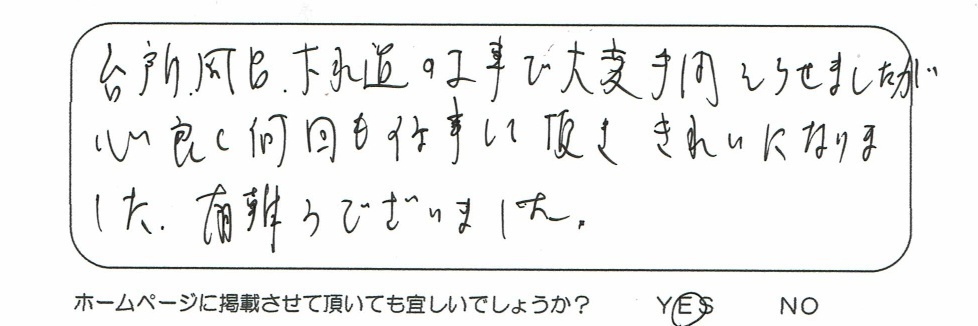 台所.風呂.下水道の工事で大変手間をとらせましたが
心良く何回も仕事して頂き きれいになりま
した. 有難うございました.
ホームページに掲載させて頂いても宜しいでしょうか? YES NO